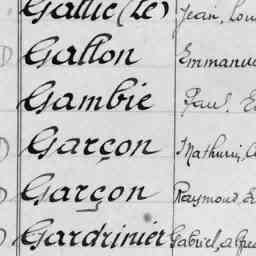 Gallic (Le) Jean, Lou
Gallon Emmanue
Gambie Paul, E
Garçon Mathurin, A
Garçon Raymond, E
Gardrinier Gabriel, alfred